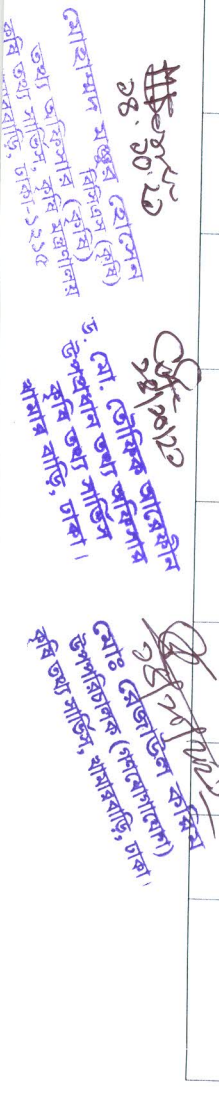 ১৪.১০.২১
মোহাম্মদ মঞ্জুর হোসেন
বিসিএস (কৃষি)
তথ্য অফিসার (কৃষি)
কৃষি তথ্য সার্ভিস, কৃষি মন্ত্রণালয়
খামারবাড়ি, ঢাকা-১২১৫
ড. মো. তৌফিক আরেফীন
উপপ্রধান তথ্য অফিসার
কৃষি তথ্য সার্ভিস
খামার বাড়ি, ঢাকা।
মোঃ রেজাউল করিম
উপপরিচালক (গণযোগাযোগ)
কৃষি তথ্য সার্ভিস, খামারবাড়ি, ঢাকা।